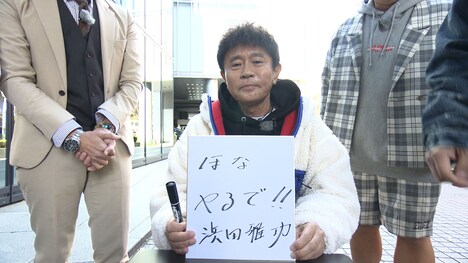 ほな
やるで!!
浜田雅功